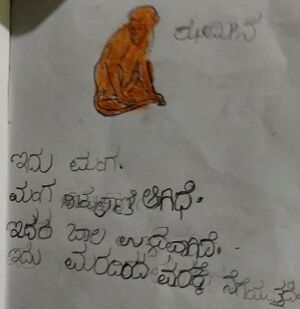 ಇದು ಮಂಗ.
ಮಂಗ ಆಗಿಧೆ.
ಇದರ ಬಾಲ ಉದ್ದವಾಗಿದೆ.
ಇದು ಮರದಿಂದ ಮರಕ್ಕೆ ನೆಗೆಯುತ್ತದೆ